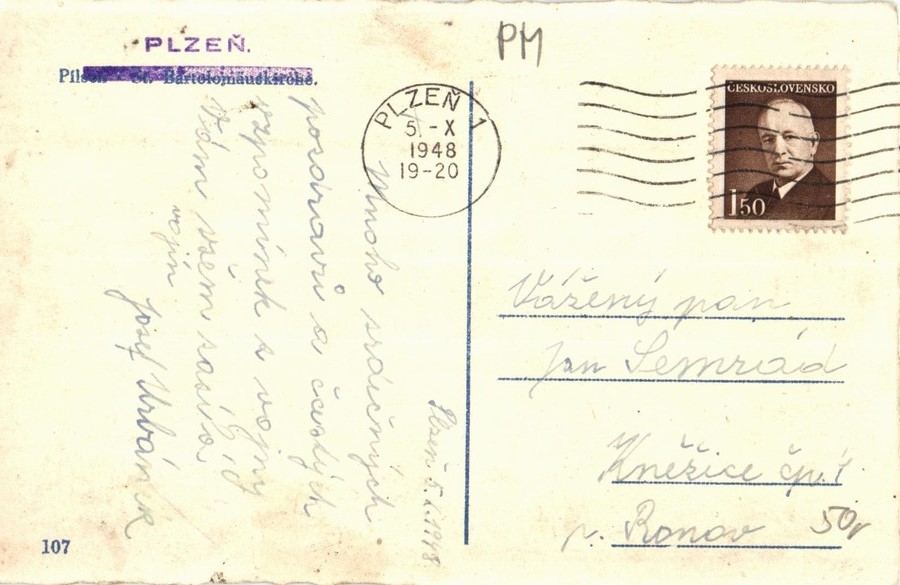 PLZEŇ.
Pilsen St. Bartolomäuskirche.
PM
PLZEŇ 1
5. -X
1948
19-20
ČESKOSLOVENSKO
1 50
Plzeň 5.X.1948
Mnoho srdečných
pozdravů a častých
vzpomínek s vojny
Vám všem zasílá
vojín
Josef Urbánek
Vážený pan
Jan Semrád
Kněžice čp. 1
p. Ronov
50,-
107